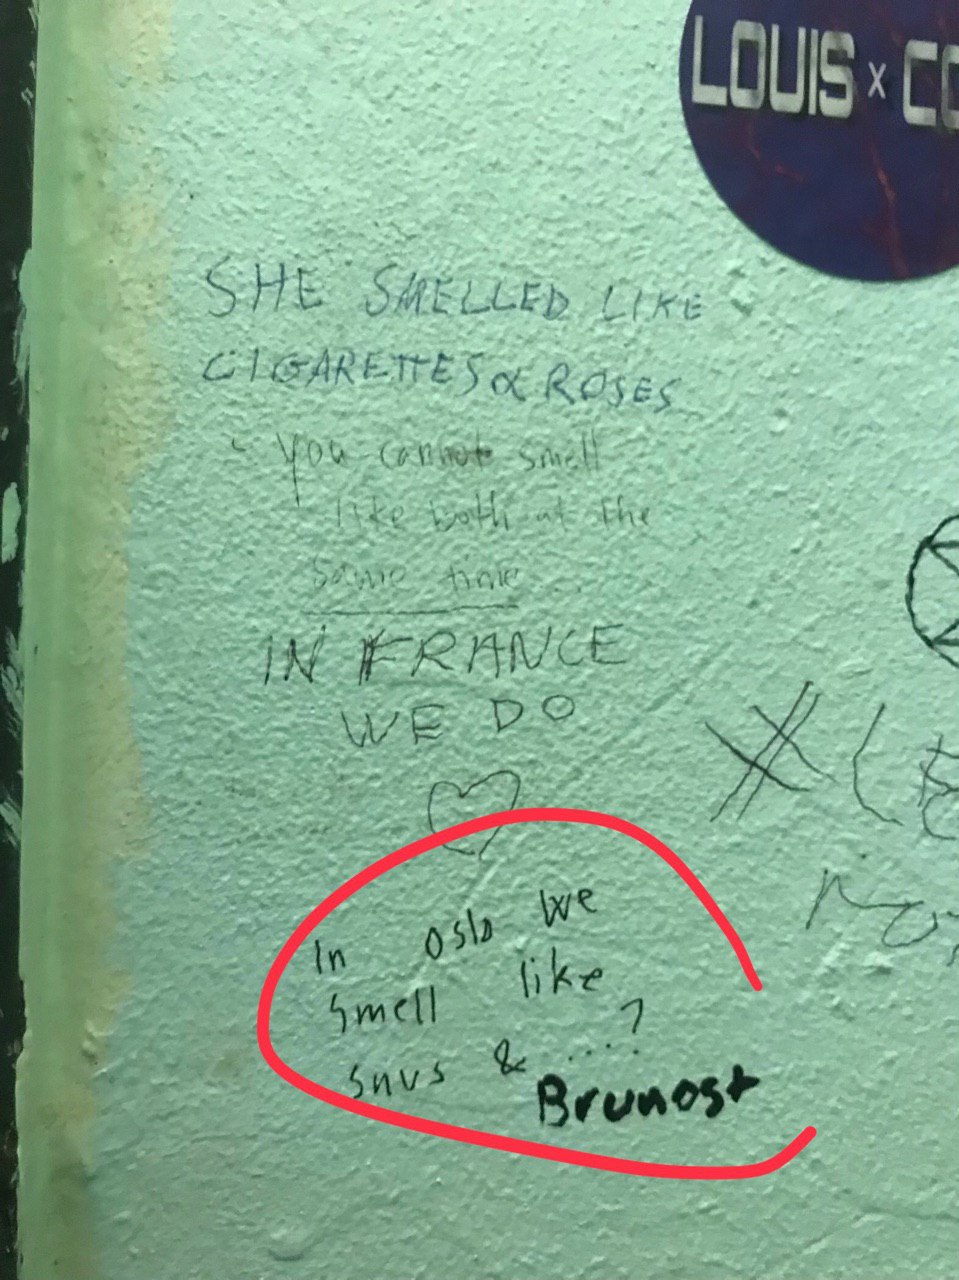 LOUIS x CO
SHE SMELLED LIKE
CIGARETTES & ROSES
- You cannot smell
like both at the
same time
IN FRANCE
WE DO
In oslo we
smell like
snus & ....?
Brunost